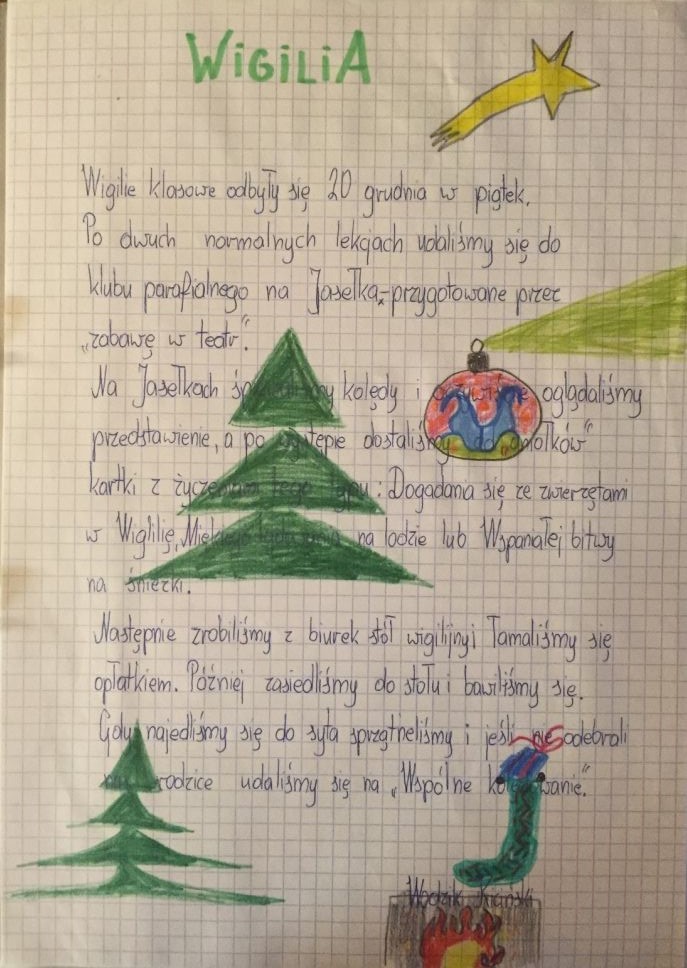 WIGILIA
Wigilie klasowe odbyły się 20 grudnia w piątek.
Po dwuch normalnych lekcjach udaliśmy się do
klubu parafialnego na Jasełka-przygotowane przez
„zabawę w teatr“.
Na Jasełkach śpiewaliśmy kolędy i oczywiście oglądaliśmy
przedstawienie, a po występie dostaliśmy „do aniołków“
kartki z życzeniami tego typu: Dogadania się ze zwierzętami
w Wiglilię, Miękkiego lądowania na lodzie lub Wspanałej bitwy
na śnieżki.
Następnie zrobiliśmy z biurek stół wigilijny i łamaliśmy się
opłatkiem. Później zasiedliśmy do stołu i bawiliśmy się.
Gdy najedliśmy się do syta sprzątneliśmy i jeśli nie odebrali
nas rodzice udaliśmy się na „Wspólne kolędowanie“.